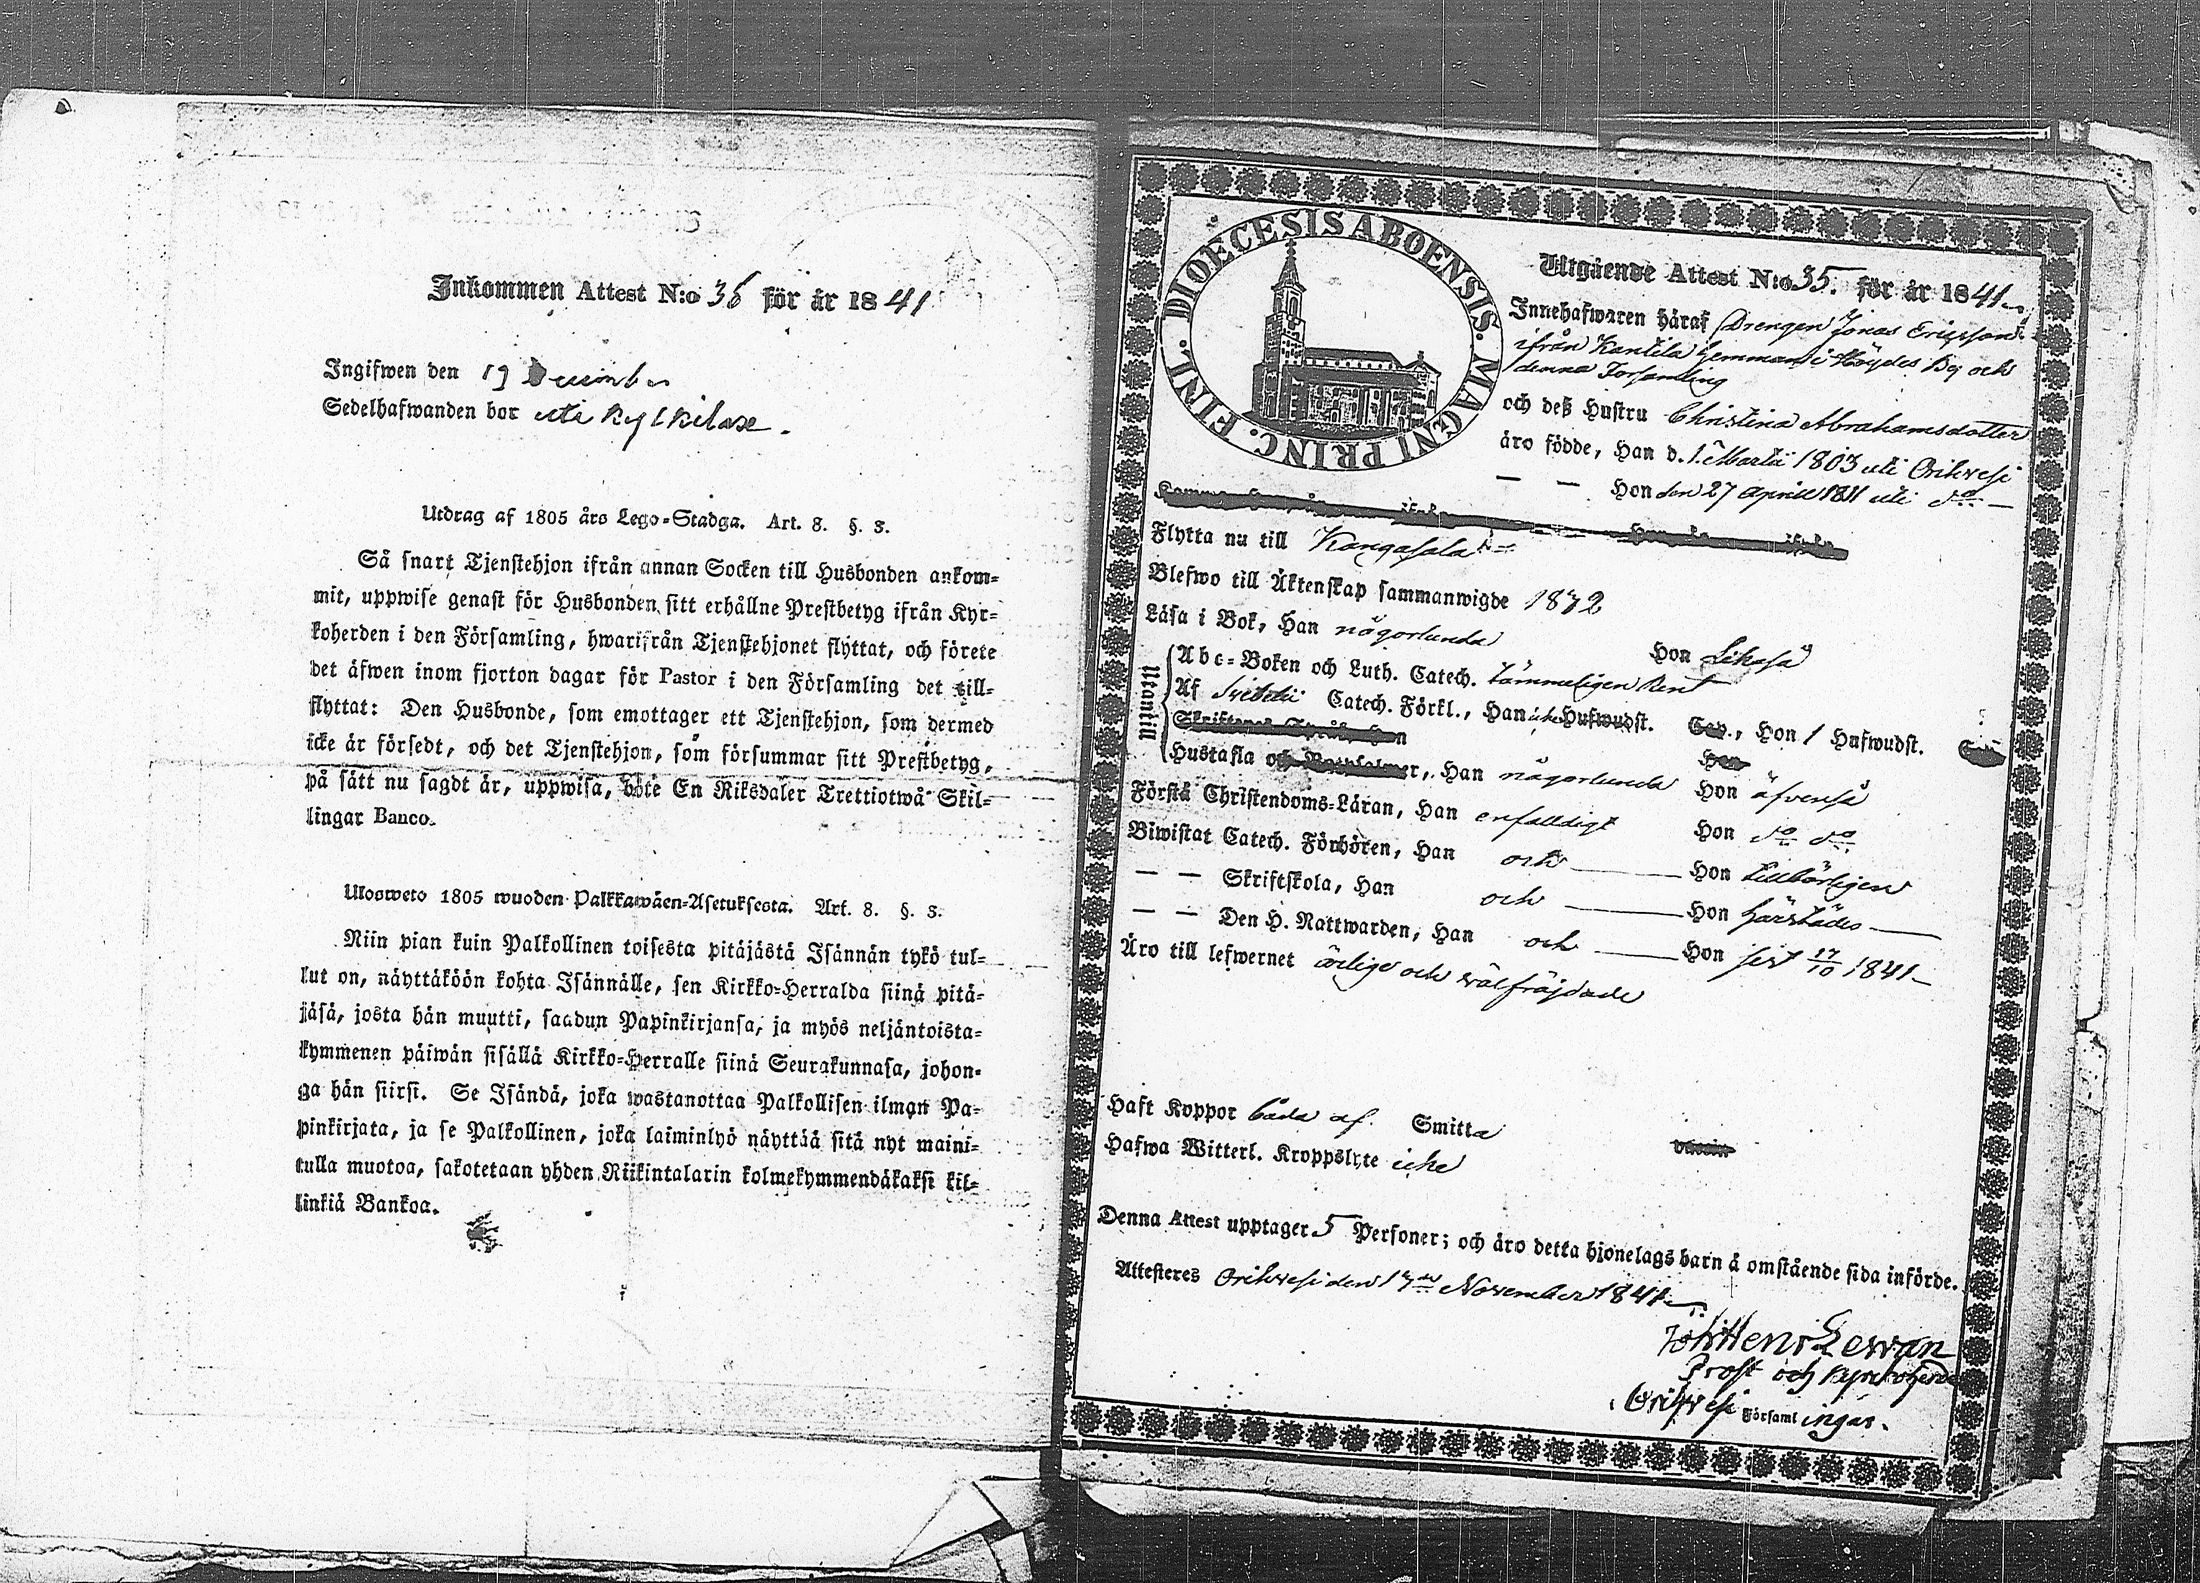 Inkommen Attest N:o 36 för år 1841
Ingifwen den 19 December
Sedelhafwanden bor uti Kylkilax.
Utdrag af 1805 års Lego-Stadga. Art. 8. §. 3.
Så snart Tjenstehjon ifrån annan Socken till Husbonden ankom-
mit, uppwise genast för Husbonden sitt erhållne Prestbetyg ifrån Kyr-
koherden i den Församling, hwarifrån Tjenstehjonet flyttat, och förete
det äfwen inom fjorton dagar för Pastor i den Församling det till-
flyttat: Den Husbonde, som emottager ett Tjenstehjon, som dermed
icke är försedt, och det Tjenstehjon, som försummar sitt Prestbetyg,
på sätt nu sagdt är, uppwisa, böte En Riksdaler Trettiotwå Skil-
lingar Banco.
Ulosweto 1805 wuoden Palkkawäen-Asetuksesta. Art. 8. §. 3.
Niin pian kuin Palkollinen toisesta pitäjästä Isännän tykö tul-
lut on, näyttäköön kohta Isännälle, sen Kirkko-Herralda siinä pitä-
jäsä, josta hän muutti, saadun Papinkirjansa, ja myös neljäntoista-
kymmenen päiwän sisällä Kirkko-Herralle siinä Seurakunnasa, johon-
ga hän siirsi. Se Isändä, joka wastanottaa Palkollisen ilman Pa-
pinkirjata, ja se Palkollinen, joka laiminlyö näyttää sitä nyt maini-
tulla muotoa, sakotetaan yhden Riikintalarin kolmekymmendäkaksi kil-
linkiä Bankoa.
DIOECESIS ABOENSIS. MAGNI PRINC. FINL.
Utgående Attest N:o 35. för år 1841
Innehafwaren häraf Drengen Jonas Ericsson
ifrån Kantila hemman i Höydes By och
denna Forsamling
och deß Hustru Christina Abrahamsdotter
äro födde, Han d. 1 Martii 1803 uti Orihvesi
— — Hon den 27 April 1811 uti do —
Flytta nu till Kangasala
Blefwo till Äktenskap sammanwigde 1832
Läsa i Bok, Han någorlunda Hon Likaså
Utantill
Abc-Boken och Luth. Catech. Tämmeligen Rent
Af Svebelii Catech. Förkl., Han icke Hufwudst. Hon 1 Hufwudst.
Hustafla Han någorlunda Hon äfvenså
Förstå Christendoms-Läran, Han enfalldigt Hon do do
Biwistat Catech. Förhören, Han och Hon tillbörligen
— — Skriftskola, Han och Hon härstädes
— — Den H. Nattwarden, Han och Hon sist 17/10 1841
Äro till lefwernet ärlige och välfräjdade
Haft Koppor båda af Smitta
Hafwa Witterl. Kroppslyte icke
Denna Attest upptager 5 Personer; och äro detta hjonelags barn å omstående sida införde.
Attesteres Orihvesi den 17de November 1841
Joh Henr Levvan
Prost och Kyrkoherde
Orihvesi Församlingar.